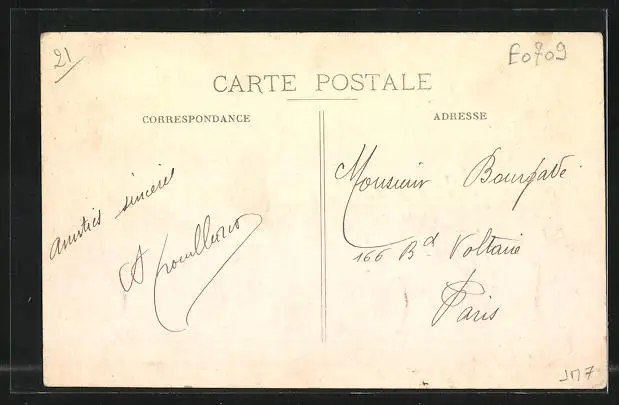 21
E0709
CARTE POSTALE
CORRESPONDANCE
ADRESSE
amitiés sincères
Monsieur Bourgade
166 Bd Voltaire
Paris
JM7